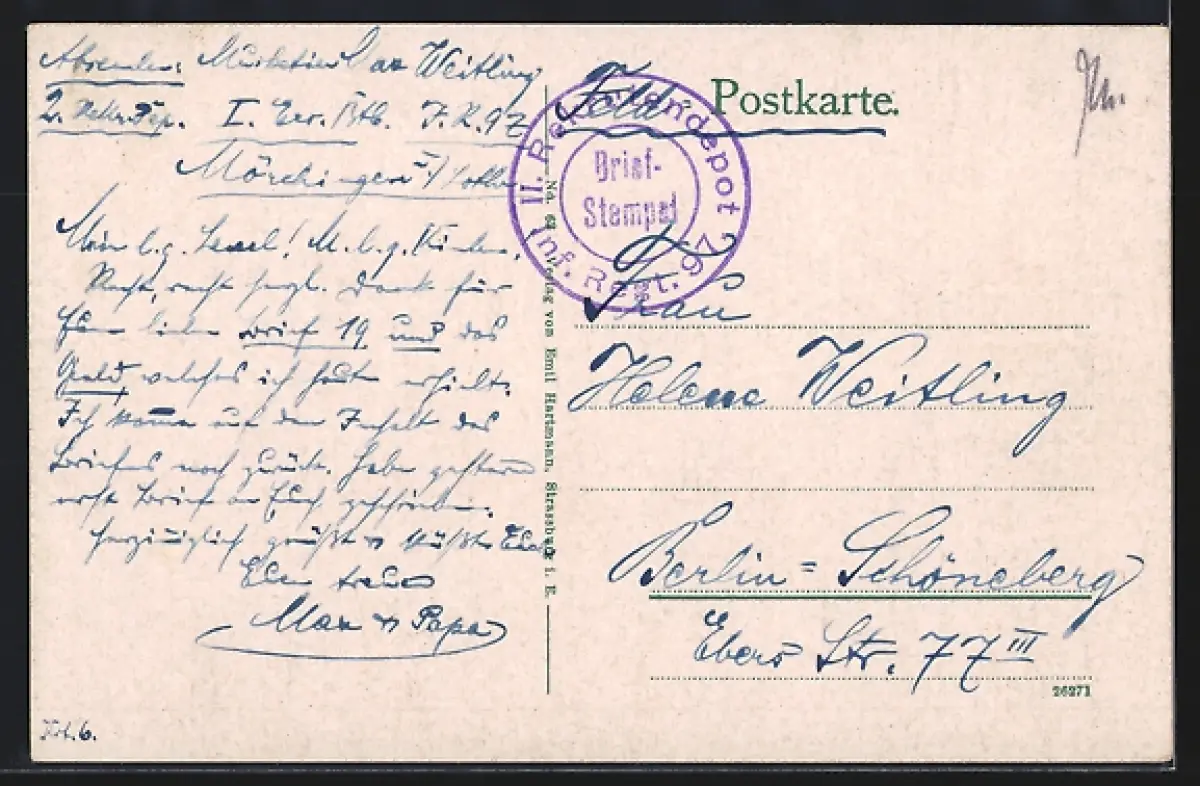 Absender: Musketier Max Weitling
2. Rekr. Dep. I. Ers. Btl. I. R. 97
Mörchingen i/Lothr.
Mein l. g. ! M. l. g. Kinder.
Recht, recht herzl. Dank für
Euren lieben Brief 19 und das
Geld, welches ich heute erhielt.
Ich komme auf den Inhalt des
Briefes noch zurück. Habe gestern
erst Brief an Euch geschrieben.
Herzinniglich grüßt u küßt Euch
Euer treuer
Max u Papa
Krt. 6.
Feld Postkarte.
II. Rekrutendepot
Inf. Regt.
Brief-
Stempel
Verlag von Emil Hartmann, Strassburg i. E.
Frau
Helene Weitling
Berlin=Schöneberg
Ebers Str. 77 III
26271